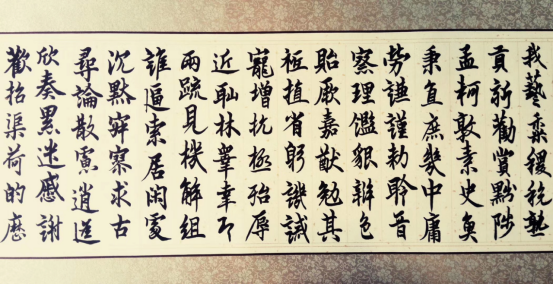 我藝黍稷稅熟
貢新勸賞黜陟
孟軻敦素史魚
秉直庶幾中庸
勞謙謹勑聆音
察理鑑貌辨色
貽厥嘉猷勉其
祗植省躬譏誡
寵增抗極殆辱
近耻林皋幸即
兩疏見機解組
誰逼索居閑處
沉默寂寥求古
尋論散慮逍遙
欣奏累遣慼謝
歡招渠荷的歷